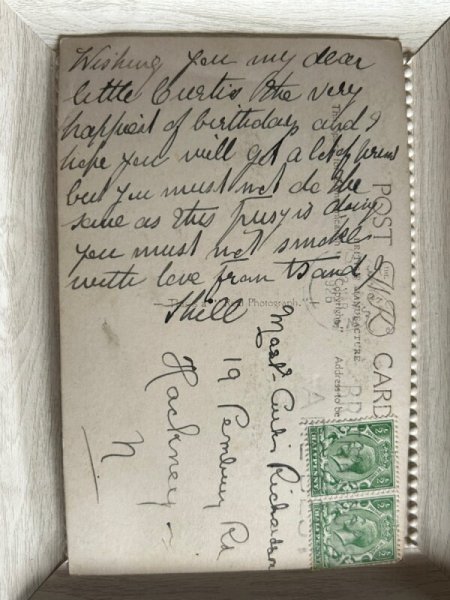 Wishing you my dear
little Curtis the very
happiest of birthdays and I
hope you will get a lot of
but you must not do the
same as this pussy is doing
you must not smoke
with love from
POST CARD
BRITISH MANUFACTURE
Photograph."
Copyright
Address to be
Mast^r Curtis Richardson
19 Pembury Rd
Hackney
N
HALFPENNY
HALFPENNY